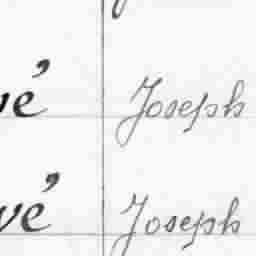 vé Joseph
vé Joseph